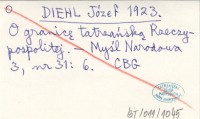 DIEHL Józef 1923.
O granicę tatrzańską Rzeczy-
pospolitej. — Myśl Narodowa
3, nr 31: 6. CBG
bT/011/1045